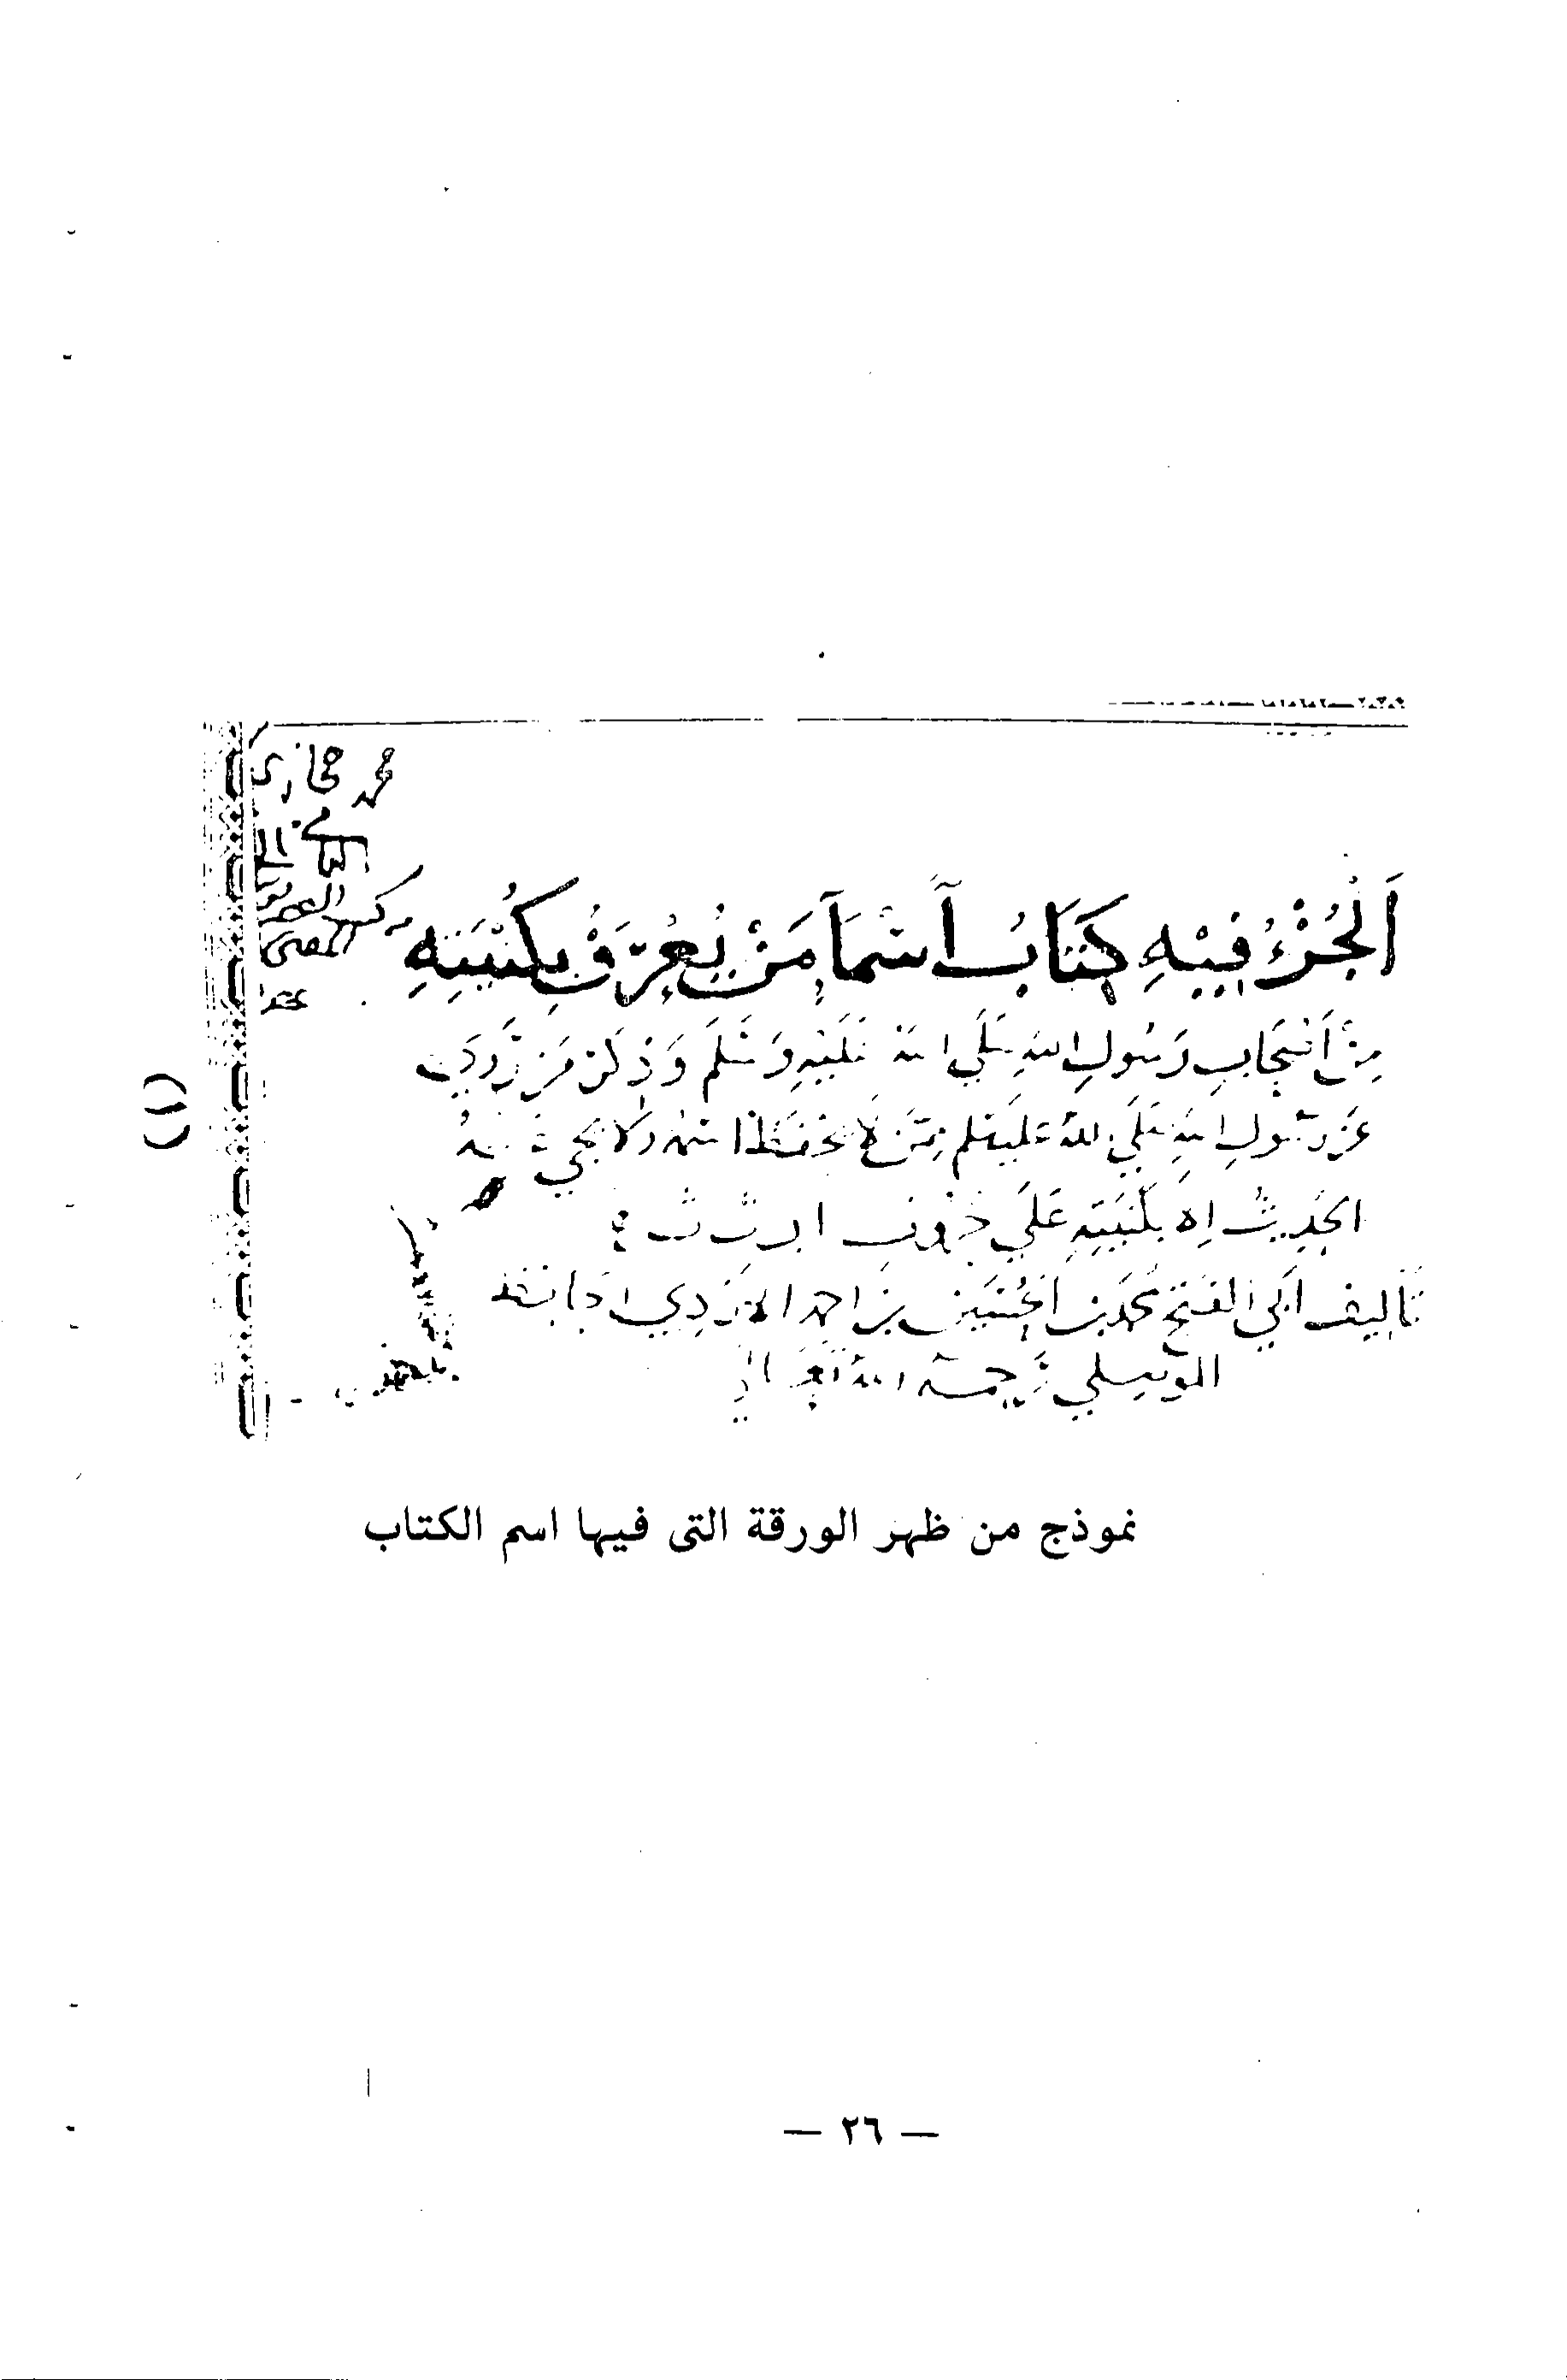 محمد حجازى
اَلْجُزْءُ فِيْهِ كِتَابُ أَسْمَآءِ مَنْ يُعْرَفُ بِكُنْيَتِهِ
مِنْ أَصْحَابِ رَسُولِ اللهِ صَلَّي الله عَلَيْهِ وَسَلَّمَ وَذِكْرُ مَنْ رَوَي
عَن رسُولِ اللهِ صَلَّي اللهُ عليه وسلم مِمَّن لَا يحْفَظُ اسمه ولا يجي
الحَدِيثُ إلا بكُنيَتِهِ عَلَي حُرُوفِ ا ب ت ث
تأليف أبي الفَتْح محمد بن الحُسَين بن احمد الازدِي الحافظ
الموصلي رَحِمَهُ اللهُ تَعَالي
(١)
نموذج من ظهر الورقة التى فيها اسم الكتاب
— ٢٦ —